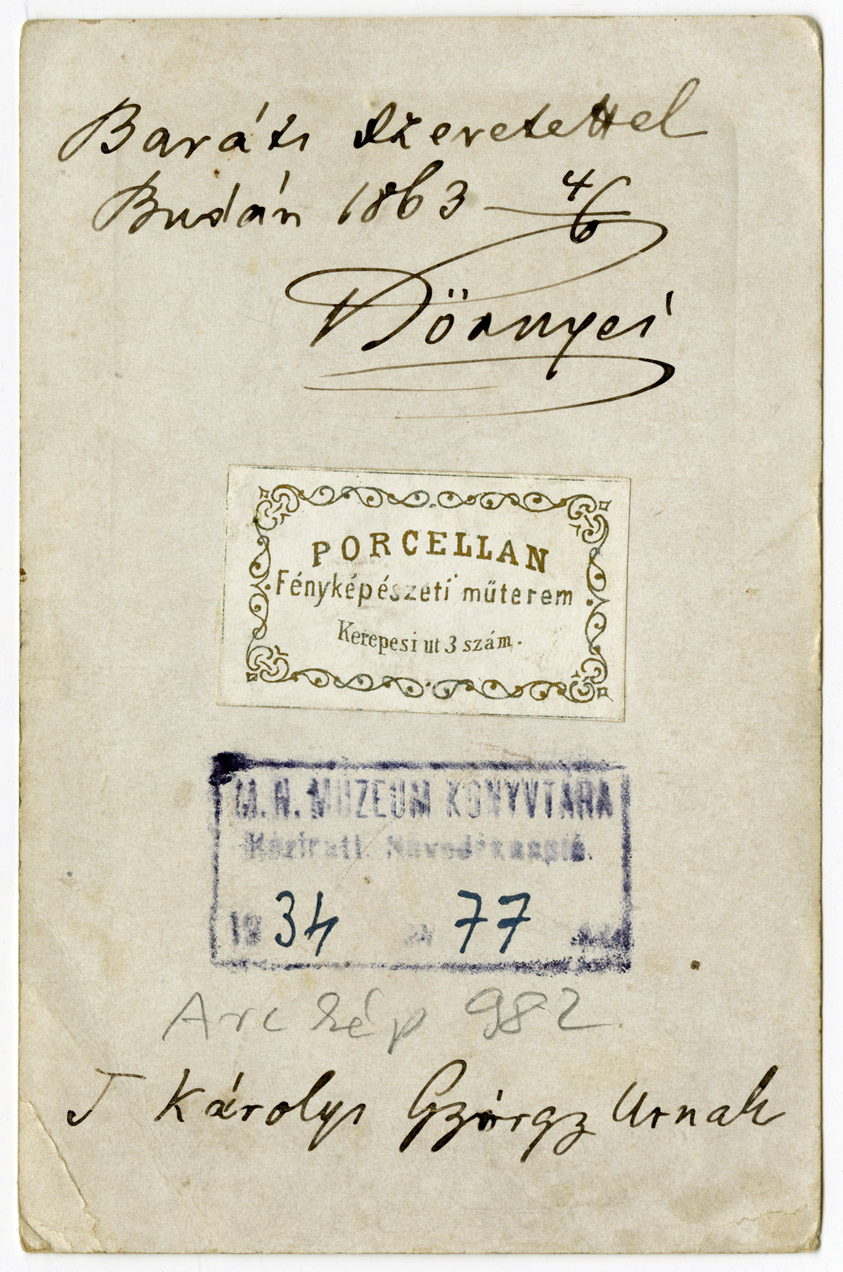 Baráti szeretettel
Budán 1863 4/6
Dörnyei
PORCELLAN
Fényképészeti műterem
Kerepesi ut 3 szám.
M. N. MÚZEUM KÖNYVTÁRA
Kézirati. Növedéknapló.
19 34 77
Arckép 982
T Károlyi György Urnak